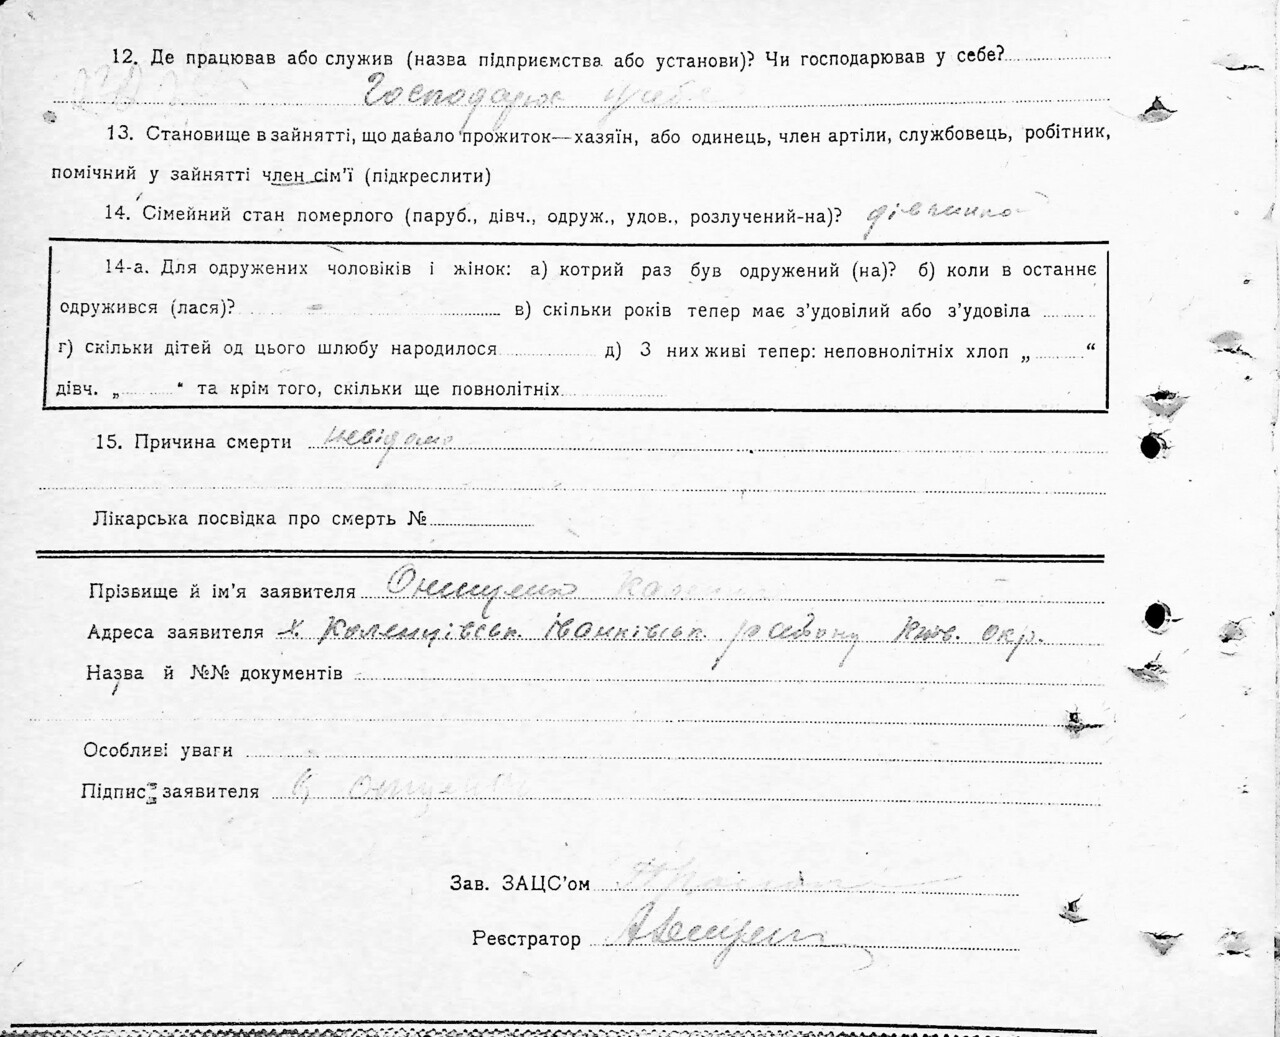 12. Де працював або служив (назва підприємства або установи)? Чи господарював у себе?
Господарює у себе
13. Становище в зайнятті, що давало прожиток—хазяїн, або одинець, член артіли, службовець, робітник,
помічний у зайнятті член сім'ї (підкреслити)
14. Сімейний стан померлого (паруб., дівч., одруж., удов., розлучений-на)? дівчинка
14-а. Для одружених чоловіків і жінок: а) котрий раз був одружений (на)? б) коли в останнє
одружився (лася)? в) скільки років тепер має з'удовілий або з'удовіла
г) скільки дітей од цього шлюбу народилося д) З них живі тепер: неповнолітніх хлоп „ “
дівч. „ “ та крім того, скільки ще повнолітніх
15. Причина смерти невідома
Лікарська посвідка про смерть №
Прізвище й ім'я заявителя
Адреса заявителя х. Коленцівськ. Іванківськ. району Київ. окр.
Назва й №№ документів
Особливі уваги
Підпис заявителя
Зав. ЗАЦС'ом
Реєстратор